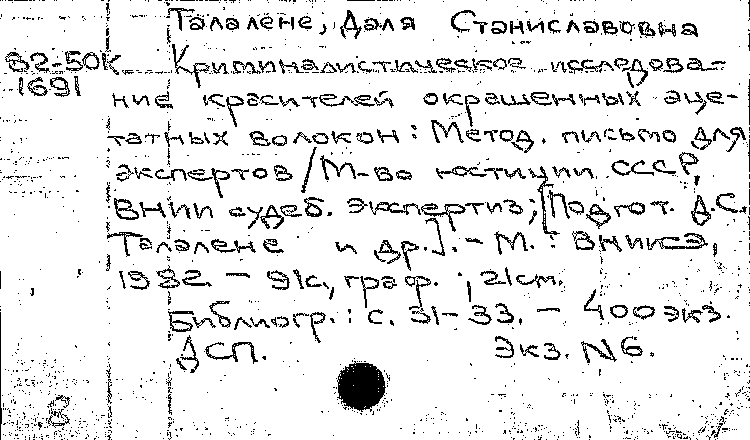 Талалене, Даля Станиславовна
82-50К Криминалистическое исследова-
1691 ние красителей окрашенных аце-
татных волокон: Метод. письмо для
экспертов / М-во юстиции СССР,
ВНИИ судеб. экспертиз; [Подгот. Д.С.
Талалене и др.]. - М.: ВНИИСЭ,
1982. - 91с., граф. ; 21см.
Библиогр.: с. 31-33. - 400 экз.
ДСП. Экз. N6.
8